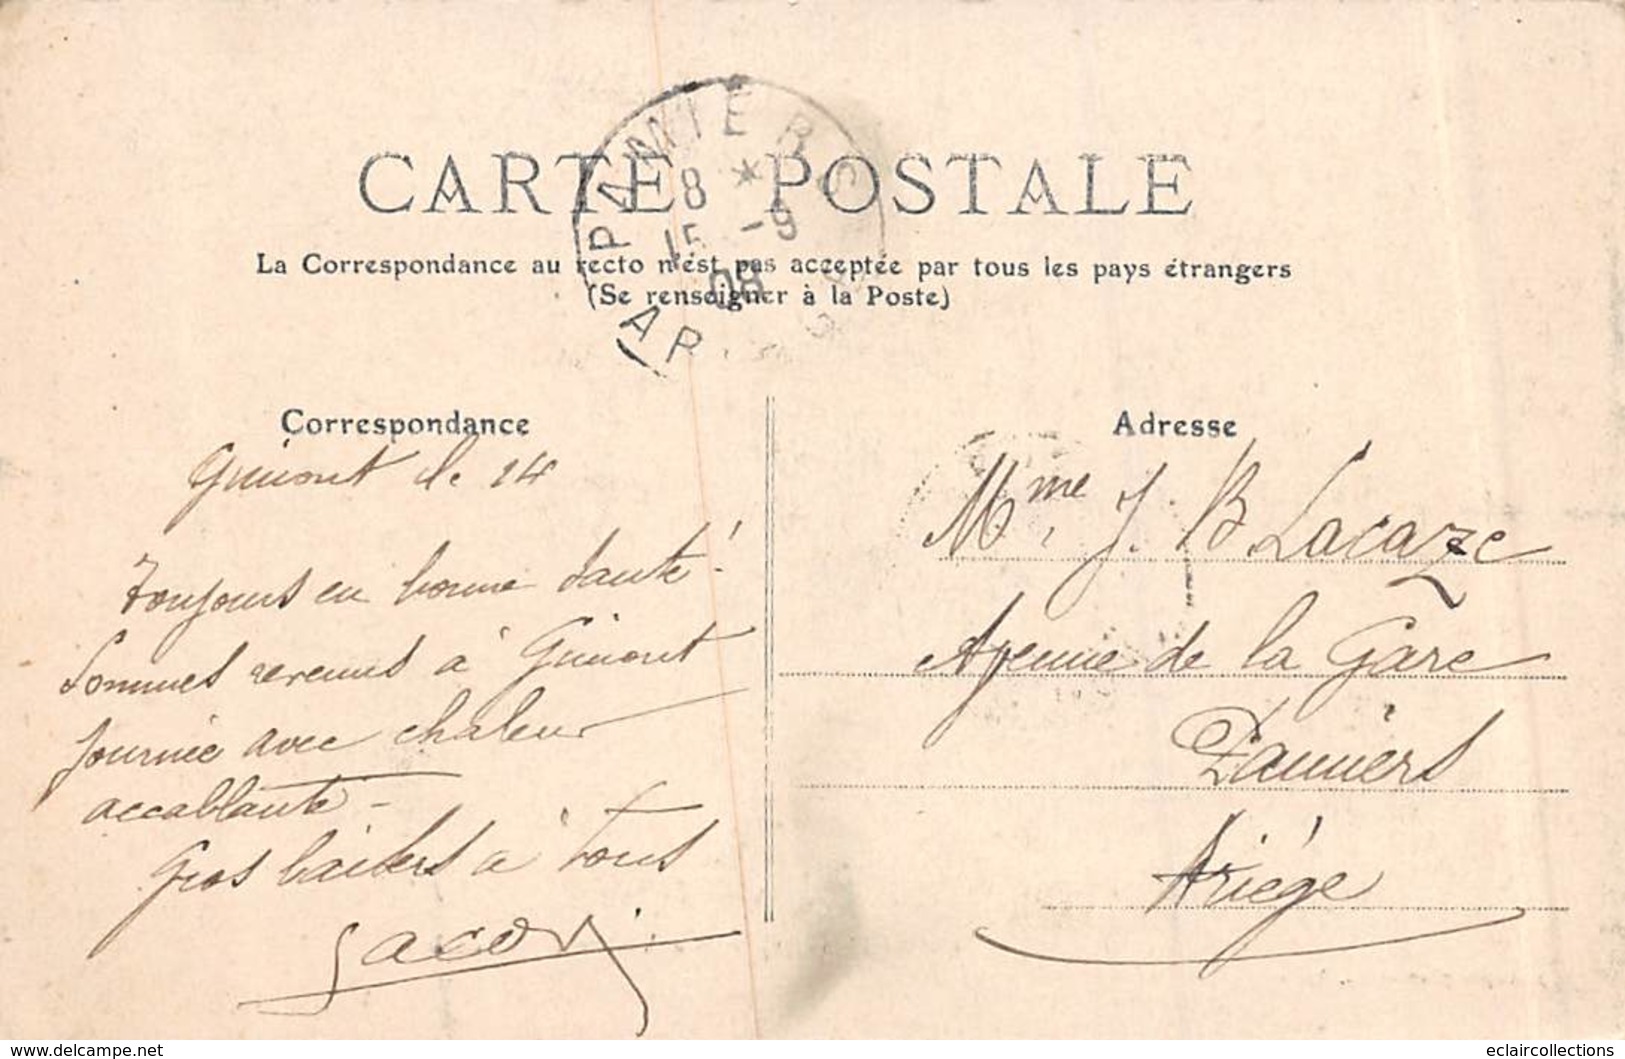 CARTE POSTALE
La Correspondance au recto n'est pas acceptée par tous les pays étrangers
(Se renseigner à la Poste)
PAMIERS
8 *
15 -9
08
AR
Correspondance
Gimont le 14
Toujours en bonne santé!
Sommes revenus à Gimont
Journée avec chaleur
accablante -
Gros baisers à tous
Adresse
Mme J. B Lacaze
Avenue de la Gare
Pamiers
Ariège
www.delcampe.net
eclaircollections